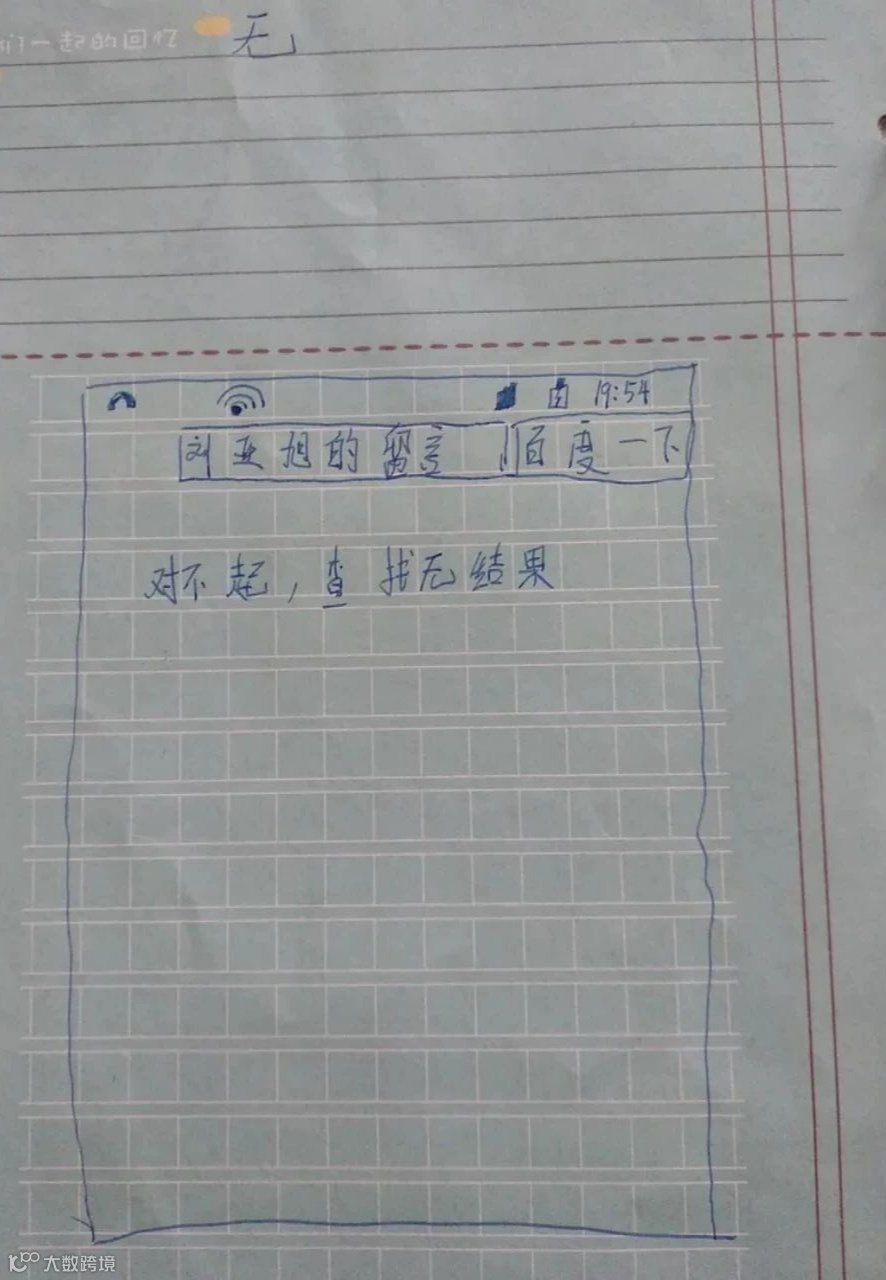 们一起的回忆 无
19:54
刘亚旭的留言 百度一下
对不起，查找无结果
大数跨境